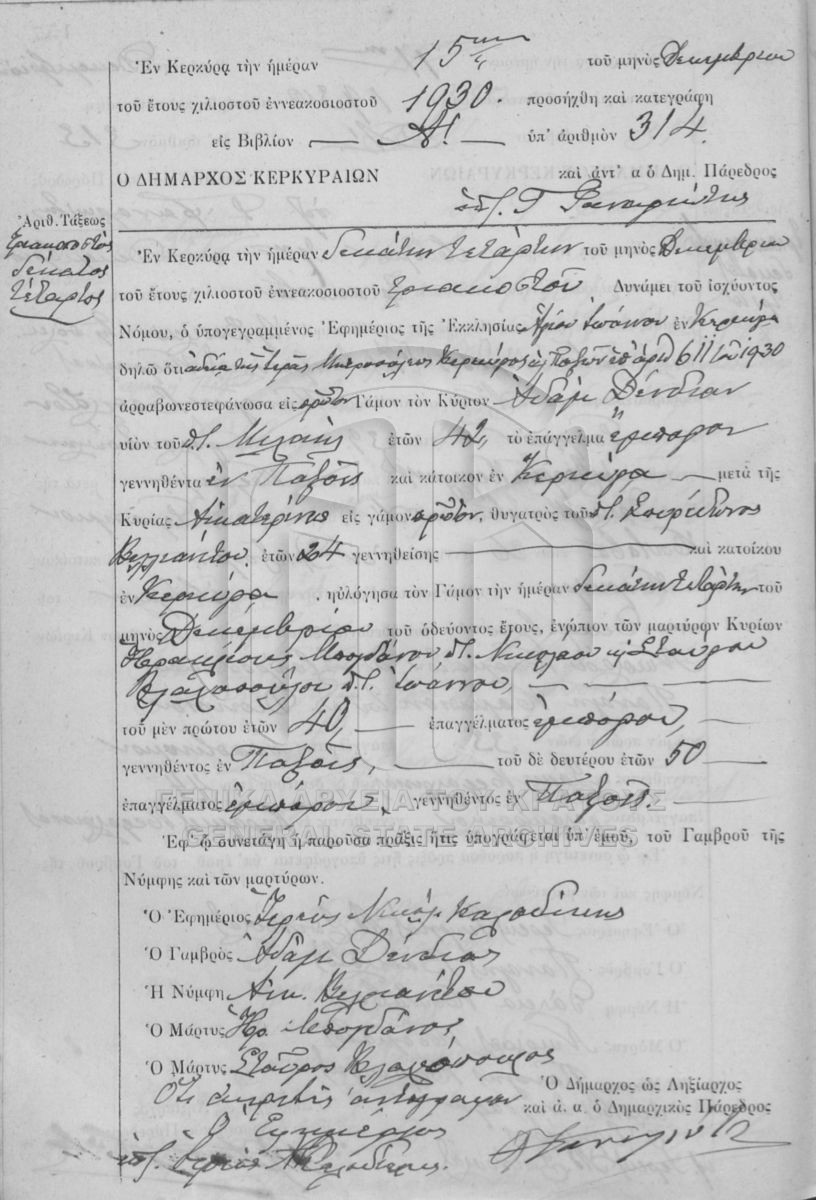 Ἐν Κερκύρᾳ τὴν ἡμέραν 15ην τοῦ μηνὸς Δεκεμβρίου
τοῦ ἔτους χιλιοστοῦ ἐννεακοσιοστοῦ 1930. προσήχθη καὶ κατεγράφη
εἰς Βιβλίον Α! ὑπ' ἀριθμὸν 314.
Ο ΔΗΜΑΡΧΟΣ ΚΕΡΚΥΡΑΙΩΝ καὶ ἀντ' α ὁ Δημ. Πάρεδρος
Γ
Ἀριθ. Τάξεως
Τριακοσιοστὸς
δέκατος
τέταρτος
Ἐν Κερκύρᾳ τὴν ἡμέραν δεκάτην τετάρτην τοῦ μηνὸς Δεκεμβρίου
τοῦ ἔτους χιλιοστοῦ ἐννεακοσιοστοῦ τριακοστοῦ Δυνάμει τοῦ ἰσχύοντος
Νόμου, ὁ ὑπογεγραμμένος Ἐφημέριος τῆς Ἐκκλησίας Ἁγίου Ἰωάννου ἐν Κερκύρᾳ
δηλῶ ὅτι ἀδείᾳ τῆς Ἱερᾶς Μητροπόλεως Κερκύρας καὶ Παξῶν ὑπ' ἀριθ 611 τοῦ 1930
ἀρραβωνεστεφάνωσα εἰς πρῶτον Γάμον τὸν Κύριον Ἀδὰμ Δένδιαν
υἱὸν τοῦ π. Μιχαὴλ ἐτῶν 42, τὸ ἐπάγγελμα ἔμπορον
γεννηθέντα ἐν Παξοῖς καὶ κάτοικον ἐν Κερκύρᾳ μετὰ τῆς
Κυρίας Αἰκατερίνης εἰς γάμον πρῶτον, θυγατρὸς τοῦ π. Σπυρίδωνος
Βελλιανίτου. ἐτῶν 24 γεννηθείσης καὶ κατοίκου
ἐν Κερκύρᾳ , ηὐλόγησα τὸν Γάμον τὴν ἡμέραν δεκάτην τετάρτην τοῦ
μηνὸς Δεκεμβρίου τοῦ ὁδεύοντος ἔτους, ἐνώπιον τῶν μαρτύρων Κυρίων
Ἡρακλέους Μπογδάνου π. Νικολάου καὶ Σταύρου
Βλαχοπούλου π. Ἰωάννου,
τοῦ μὲν πρώτου ἐτῶν 40, ἐπαγγέλματος ἐμπόρου,
γεννηθέντος ἐν Παξοῖς, τοῦ δὲ δευτέρου ἐτῶν 50
ἐπαγγέλματος ἐμπόρου, γεννηθέντος ἐν Παξοῖς.
ΓΕΝΙΚΑ ΑΡΧΕΙΑ ΤΟΥ ΚΡΑΤΟΥΣ
GENERAL STATE ARCHIVES
Ἐφ' ᾧ συνετάγη ἡ παροῦσα πρᾶξις ἥτις ὑπογράφεται ὑπ' ἐμοῦ, τοῦ Γαμβροῦ τῆς
Νύμφης καὶ τῶν μαρτύρων.
Ὁ Ἐφημέριος Ἱερεὺς
Ὁ Γαμβρὸς Ἀδὰμ Δένδιας
Ἡ Νύμφη Αἰκ. Βελλιανίτου
Ὁ Μάρτυς Ἡρ. Μπογδάνος
Ὁ Μάρτυς Σταῦρος Βλαχόπουλος
Ὅτι ἀκριβὲς ἀντίγραφον
Ὁ Ἐφημέριος
Ὁ Δήμαρχος ὡς Ληξίαρχος
καὶ ἀ. α. ὁ Δημαρχικὸς Πάρεδρος